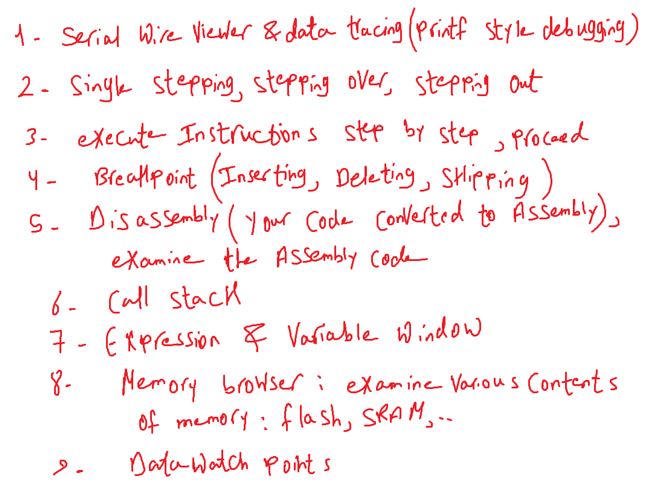 1- Serial Wire Viewer & data tracing (printf style debugging)
2- Single stepping, stepping over, stepping out
3- execute Instructions step by step, proceed
4- Breakpoint (Inserting, Deleting, Skipping)
5- Disassembly (your code converted to Assembly),
examine the Assembly code
6- Call stack
7- Expression & Variable Window
8- Memory browser: examine Various Contents
of memory: flash, SRAM,..
9- Data Watch points